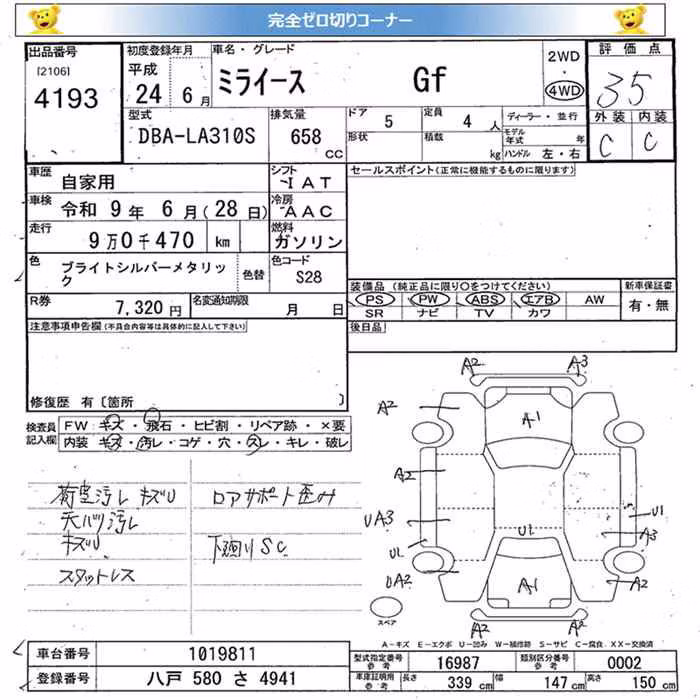 完全ゼロ切りコーナー
出品番号
[2106]
4193
初度登録年月
平成
24 6 月
車名・グレード
ミライース Gf
2WD
・
4WD
評価点
35
外装 内装
C C
型式
DBA-LA310S
排気量
658
CC
ドア
5
定員
4 人
形状
積載
kg
ディーラー・並行
モデル年式 年
ハンドル 左・右
車歴
自家用
シフト
IAT
セールスポイント(正常に機能するものに限ります)
車検
令和 9 年 6 月(28 日)
冷房
AAC
走行
9万0千470 km
燃料
ガソリン
色
ブライトシルバーメタリック
色替
色コード
S28
装備品(純正品に限り○をつけてください)
新車保証書
PS PW ABS エアB AW
有・無
SR ナビ TV カワ
R券
7,320 円
名変通知期限
月 日
後日品
注意事項申告欄(不具合内容等は具体的に記入して下さい)
修復歴 有〔箇所 〕
検査員記入欄
FW キズ・飛石・ヒビ割・リペア跡・×要
内装 キズ・汚レ・コゲ・穴・スレ・キレ・破レ
荷室汚レ キズU
天バリ汚レ
キズU
スタットレス
ロアサポート歪み
下廻りSC
A2 A3
A2
A1
A2
UA3
U1
UA2
U1
U1
A3
A1
A2
A2 A2
スペア
A-キズ E-エクボ U-凹み W-補修跡 S-サビ C-腐食 XX-交換済
車台番号
1019811
登録番号
八戸 580 さ 4941
型式指定番号
参考
16987
類別区分番号
参考
0002
車庫証明用
参考
長さ 339 cm 幅 147 cm 高さ 150 cm